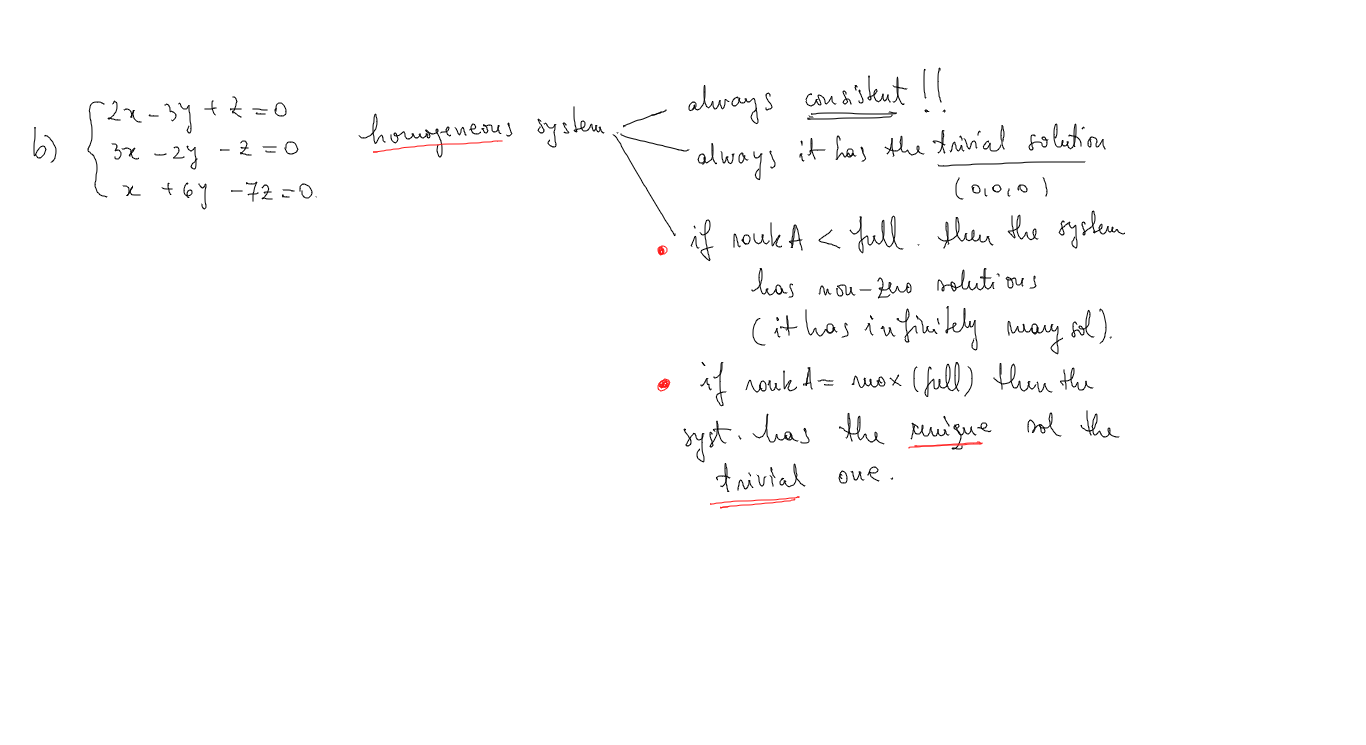 b) 2x - 3y + z = 0
3x - 2y - z = 0
x + 6y - 7z = 0.
homogeneous system
always consistent!!
always it has the trivial solution
(0,0,0)
if rank A < full. then the system
has non-zero solutions
(it has infinitely many sol).
if rank A = max (full) then the
syst. has the unique sol the
trivial one.